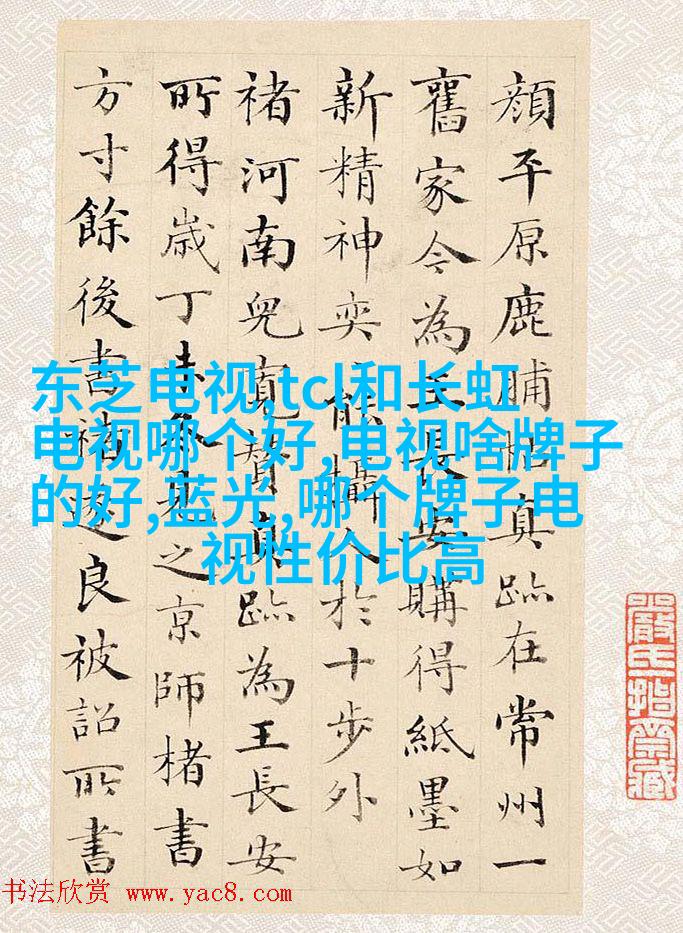 顔平原鹿脯帖真跡在常州一
舊家今為王長安購得紙墨如
新精神奕奕能攝人於十步外
褚河南兒寬贊真跡為王長安
所得歲丁未之京師楮書
方寸餘後書褚遂良被詔所書
东芝电视,tcl和长虹
电视哪个好,电视啥牌子
的好,蓝光,哪个牌子电
视性价比高
书法欣赏 www.yac8.com